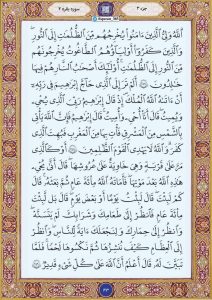 جزء ۳
سوره بقره ۲
اللَّهُ وَلِىُّ الَّذِينَ ءَامَنُوا يُخْرِجُهُم مِّنَ الظُّلُمَٰتِ إِلَى النُّورِ
وَالَّذِينَ كَفَرُوا أَوْلِيَاؤُهُمُ الطَّٰغُوتُ يُخْرِجُونَهُم
مِّنَ النُّورِ إِلَى الظُّلُمَٰتِ أُولَٰئِكَ أَصْحَٰبُ النَّارِ هُمْ فِيهَا
خَٰلِدُونَ أَلَمْ تَرَ إِلَى الَّذِى حَاجَّ إِبْرَٰهِۦمَ فِى رَبِّهِ
أَنْ ءَاتَىٰهُ اللَّهُ الْمُلْكَ إِذْ قَالَ إِبْرَٰهِۦمُ رَبِّىَ الَّذِى يُحْىِۦ
وَيُمِيتُ قَالَ أَنَا۠ أُحْىِۦ وَأُمِيتُ قَالَ إِبْرَٰهِۦمُ فَإِنَّ اللَّهَ يَأْتِى
بِالشَّمْسِ مِنَ الْمَشْرِقِ فَأْتِ بِهَا مِنَ الْمَغْرِبِ فَبُهِتَ الَّذِى
كَفَرَ وَاللَّهُ لَا يَهْدِى الْقَوْمَ الظَّٰلِمِينَ أَوْ كَالَّذِى
مَرَّ عَلَىٰ قَرْيَةٍ وَهِىَ خَاوِيَةٌ عَلَىٰ عُرُوشِهَا قَالَ أَنَّىٰ يُحْىِۦ
هَٰذِهِ اللَّهُ بَعْدَ مَوْتِهَا فَأَمَاتَهُ اللَّهُ مِائَةَ عَامٍ ثُمَّ بَعَثَهُ قَالَ
كَمْ لَبِثْتَ قَالَ لَبِثْتُ يَوْمًا أَوْ بَعْضَ يَوْمٍ قَالَ بَل لَّبِثْتَ
مِائَةَ عَامٍ فَانظُرْ إِلَىٰ طَعَامِكَ وَشَرَابِكَ لَمْ يَتَسَنَّهْ
وَانظُرْ إِلَىٰ حِمَارِكَ وَلِنَجْعَلَكَ ءَايَةً لِّلنَّاسِ وَانظُرْ
إِلَى الْعِظَامِ كَيْفَ نُنشِزُهَا ثُمَّ نَكْسُوهَا لَحْمًا فَلَمَّا
تَبَيَّنَ لَهُ قَالَ أَعْلَمُ أَنَّ اللَّهَ عَلَىٰ كُلِّ شَىْءٍ قَدِيرٌ
۴۳